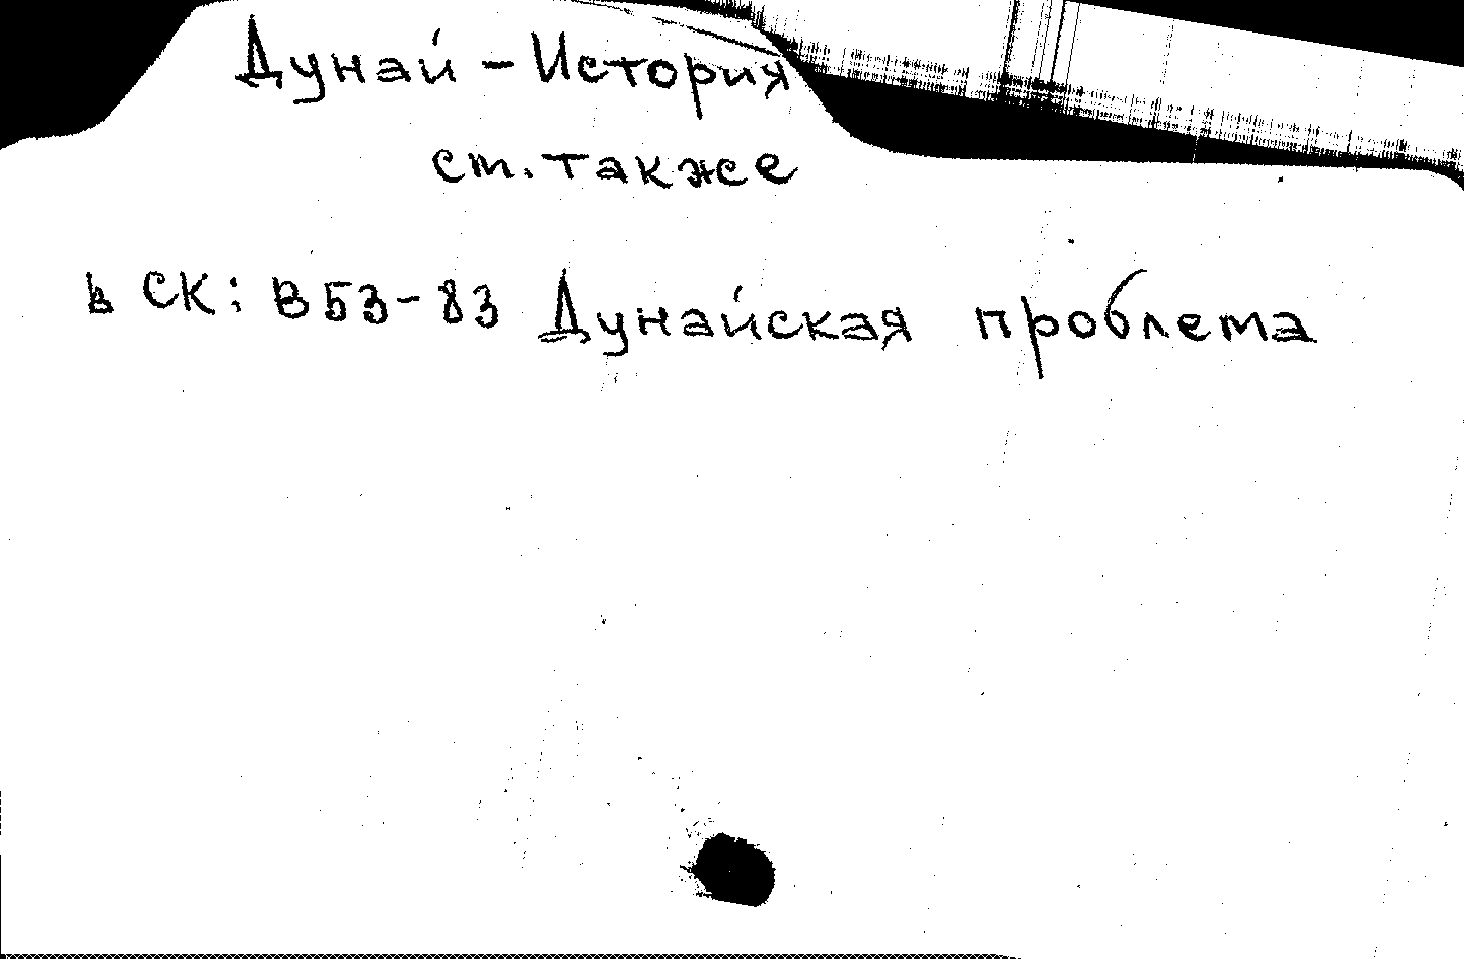 Дунай - История
см. также
в СК: В53-83 Дунайская проблема